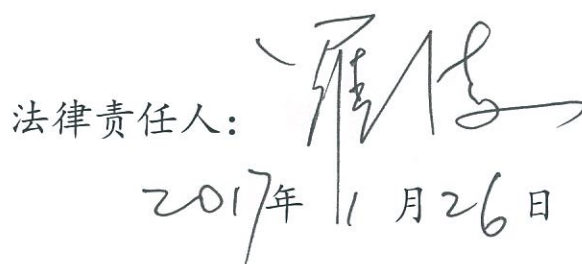 法律责任人:
2017年1月26日